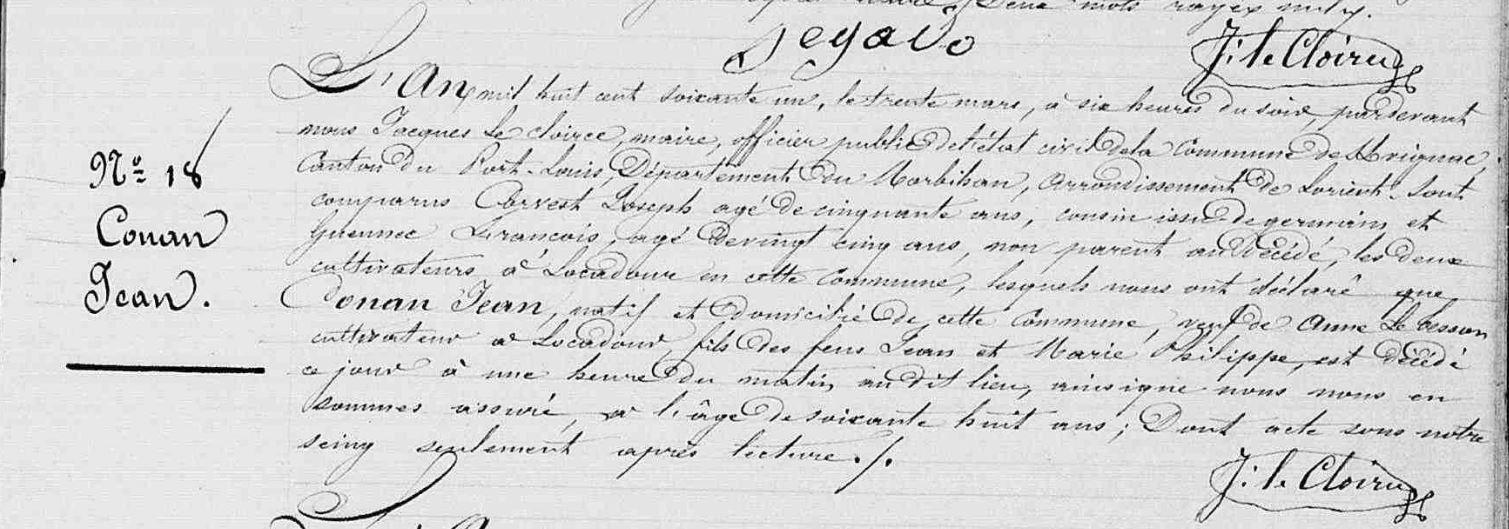 Deux mots rayés nuls.
Jegado
J: le Cloirec
L'An mil huit cent soixante un, le trente mars, à six heures du soir, pardevant
nous Jacques Le Cloirec, maire, officier public de l'état civil de la Commune de
Canton du Port-Louis, Département du Morbihan, arrondissement de Lorient. Sont
comparus Carvest Joseph agé de cinquante ans, cousin issu de germain, et
Guennec François, agé de vingt cinq ans, non parent au décédé, les deux
cultivateurs à Locadour en cette Commune, lesquels nous ont déclaré que
Conan Jean, natif et domicilié de cette Commune, veuf de Anne Le besson
cultivateur à Locadour, fils des feus Jean et Marie Philippe, est décédé
ce jour à une heure du matin, au dit lieu, ainsi que nous nous en
sommes assuré, à l'âge de soixante huit ans; Dont acte sous notre
seing seulement après lecture./.
J: le Cloirec
No 18
Conan
Jean.